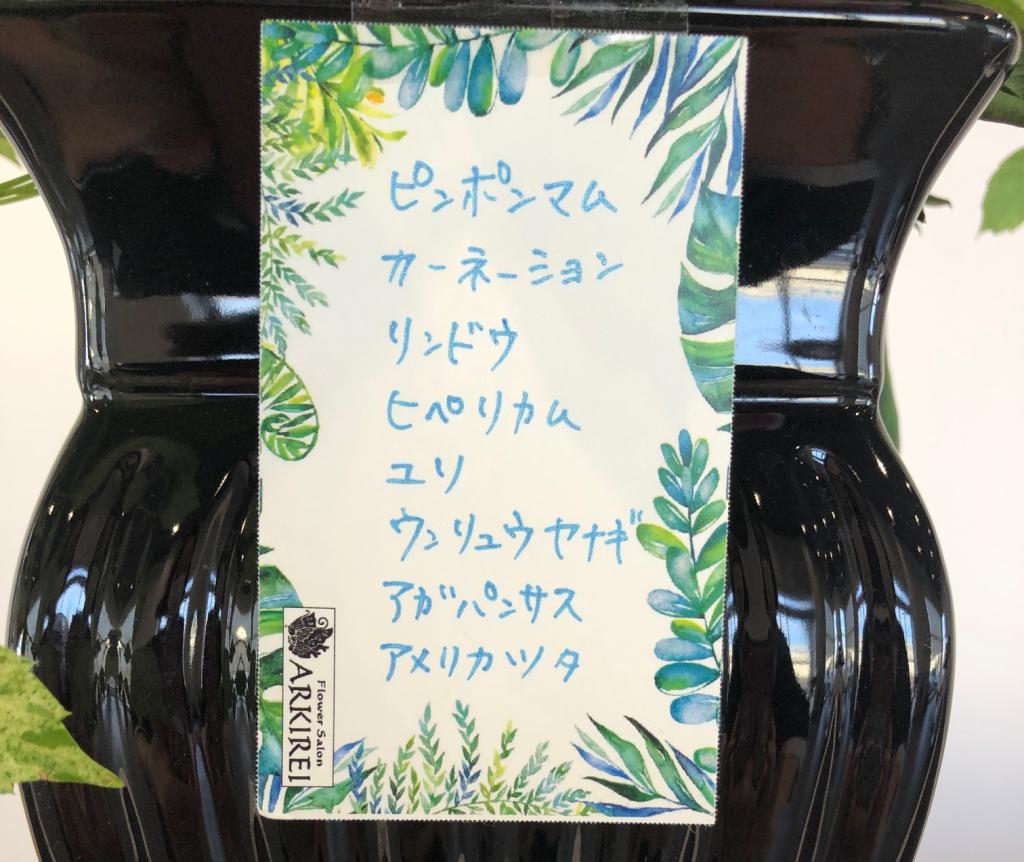 ピンポンマム
カーネーション
リンドウ
ヒペリカム
ユリ
ウンリュウヤナギ
アガパンサス
アメリカヅタ
Flower Salon
ARKIREI